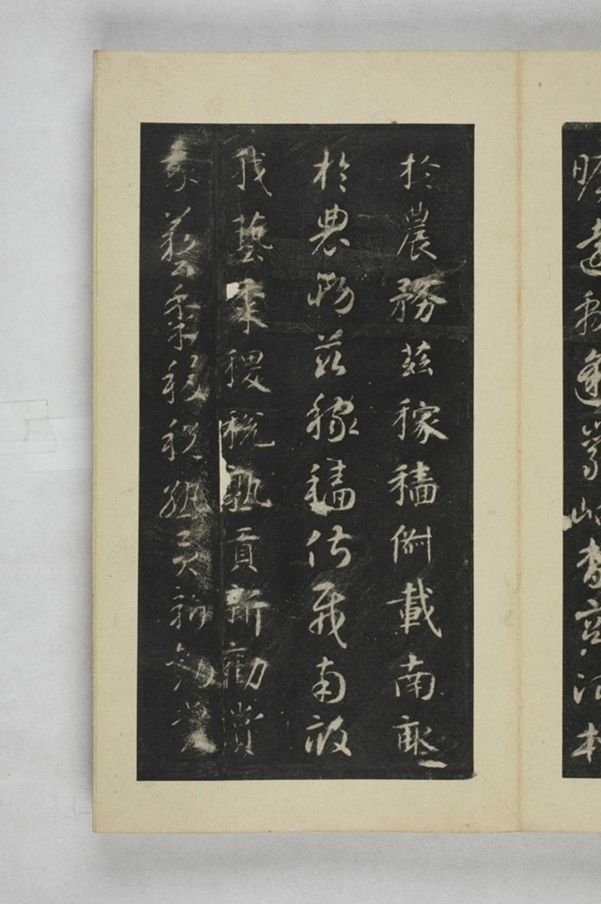 曠遠綿邈巖岫杳冥治本
於農務茲稼穡俶載南畝
於農務茲稼穡俶載南畝
我藝黍稷稅熟貢新勸賞
我藝黍稷稅熟貢新勸賞